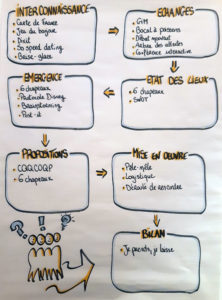 INTERCONNAISSANCE
• Carte de France
• Jeu du bagou
• Dixit
• So speed dating
• Brise-glace
ECHANGES
• GIM
• Bocal à poissons
• Débat mouvant
• Arbre des
• Conférence interactive
EMERGENCE
• 6 chapeaux
• Pantomole Disney
• Brainstorming
• Post-it
ETAT DES LIEUX
• 6 chapeaux
• SWOT
PROPOSITIONS
• CQQCOQP
• 6 chapeaux
MISE EN OEUVRE
• Pêle-mêle
• Logistique
• Déroulé de rencontre
BILAN
• Je prends, je laisse
? ! ?